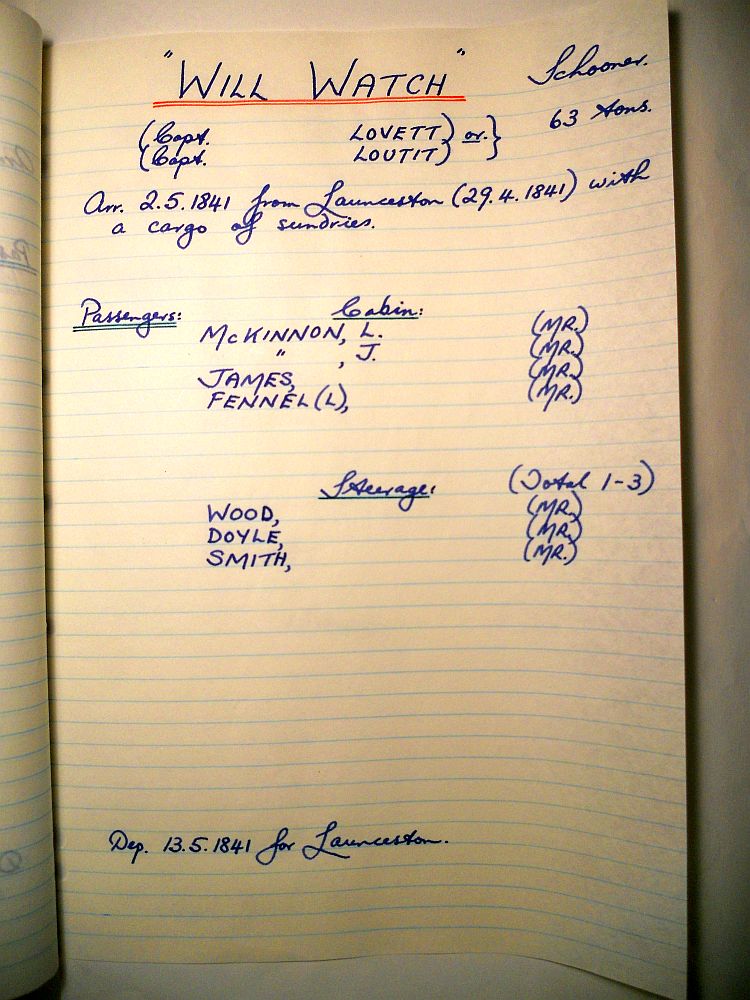 "WILL WATCH" Schooner.
63 tons.
(Capt. LOVETT) or.}
(Capt. LOUTIT)
Arr. 2.5.1841 from Launceston (29.4.1841) with
a cargo of sundries.
Passengers: Cabin:
McKINNON, L. (MR.)
" , J. (MR.)
JAMES, (MR.)
FENNEL(L), (MR.)
Steerage: (Total 1-3)
WOOD, (MR.)
DOYLE, (MR.)
SMITH, (MR.)
Dep. 13.5.1841 for Launceston.